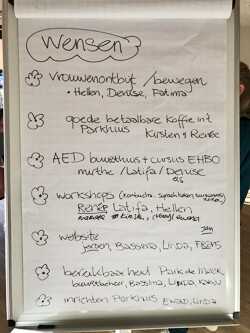 wensen
vrouwenontbijt / bewegen
• Hellen, Denise, Fatima
goede betaalbare koffie int
Parkhuis Kirsten & Renée
AED buurthuis + cursus EHBO
murthe / Latifa / Denise
workshops
Renée Latifa, Hellen
website
jeroen, Bassima, Linda,
bereikbaarheid
Bassima, Linda,
inrichten Parkhuis Ewald, Linda